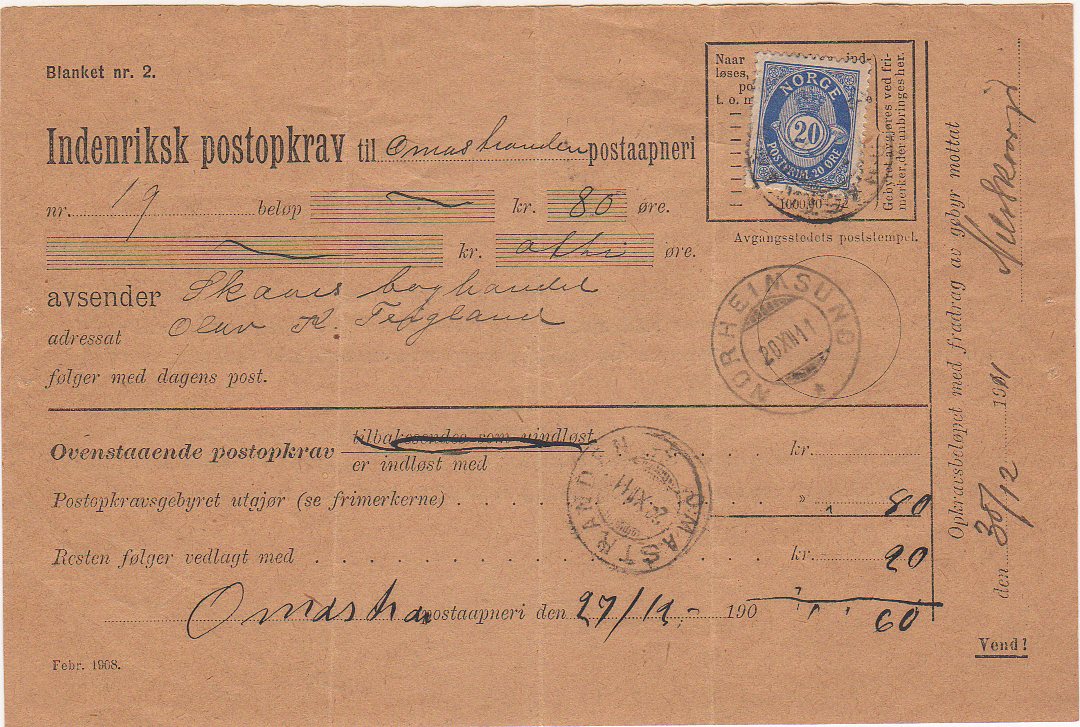 Blanket nr. 2.
Indenriksk postopkrav til Omastranden postaapneri
nr. 19 beløp kr. 80 øre.
kr. otti øre.
avsender Skaars boghandel
adressat Olav K. Teigland
følger med dagens post.
Naar ind-
løses,
po
t. o. m e
1000,00
Gebyret avgjøres ved fri-
merker, der anbringes her.
NORGE
20
POSTFRIM. 20 ØRE
Avgangsstedets poststempel.
NORHEIMSUND
20 XII 11
Ovenstaaende postopkrav tilbakesendes som uindløst
er indløst med kr.
Postopkravsgebyret utgjør (se frimerkerne) " 80
Resten følger vedlagt med kr. 20
60
OMASTRANDEN
22 XII 11
Omastra postaapneri den 27/12 190
Febr. 1908.
Opkravsbeløpet med fradrag av gebyr mottat
den 30/12 1911
Vend!